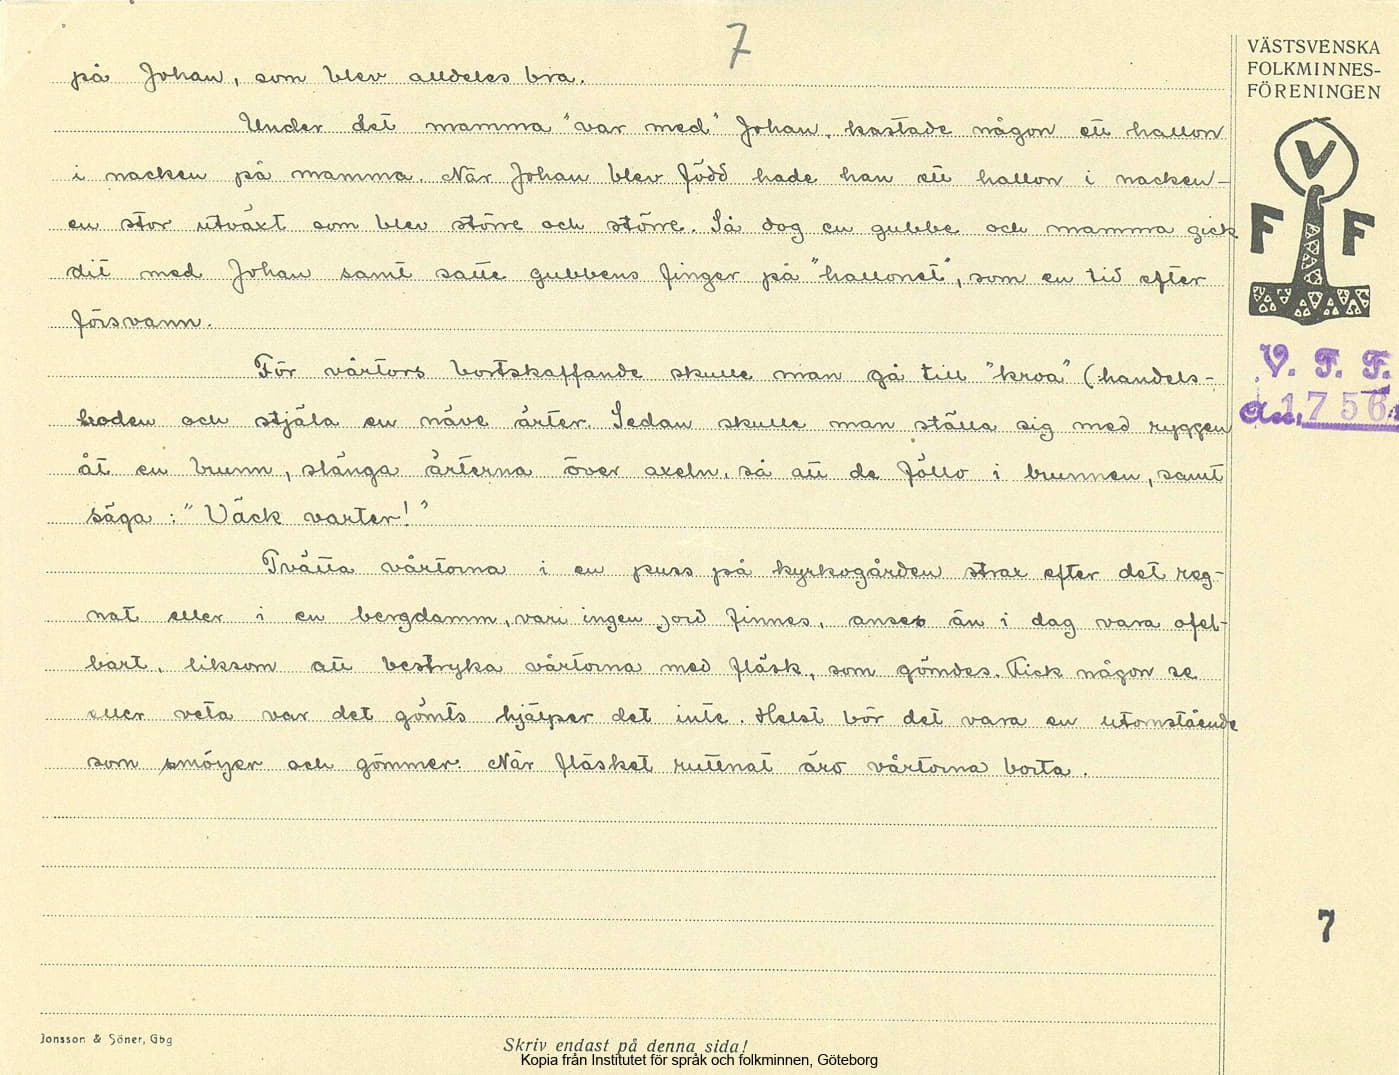 7
VÄSTSVENSKA
FOLKMINNES-
FÖRENINGEN
på Johan, som blev alldeles bra.
Under det mamma "var med" Johan, kastade någon ett hallon
i nacken på mamma. När Johan blev född hade han ett hallon i nacken -
en stor utväxt som blev större och större. Så dog en gubbe och mamma gick
dit med Johan samt satte gubbens finger på "hallonet", som en tid efter
försvann.
För vårtors bortskaffande skulle man gå till "kroa" (handels-
boden och stjäla en näve ärter. Sedan skulle man ställa sig med ryggen
åt en brunn, slänga ärterna över axeln, så att de föllo i brunnen, samt
säga: "Väck varter!"
Tvätta vårtorna i en puss på kyrkogården strax efter det reg-
nat eller i en bergdamm, vari ingen jord finnes, anses än i dag vara ofel-
bart, liksom att bestryka vårtorna med fläsk, som gömdes. Fick någon se
eller veta var det gömts hjälper det inte. Helst bör det vara en utomstående
som smörjer och gömmer. När fläsket ruttnat äro vårtorna borta.
V
F F
V. F. F.
Acc. 1756
7
Jonsson & Söner, Gbg
Skriv endast på denna sida!
Kopia från Institutet för språk och folkminnen, Göteborg